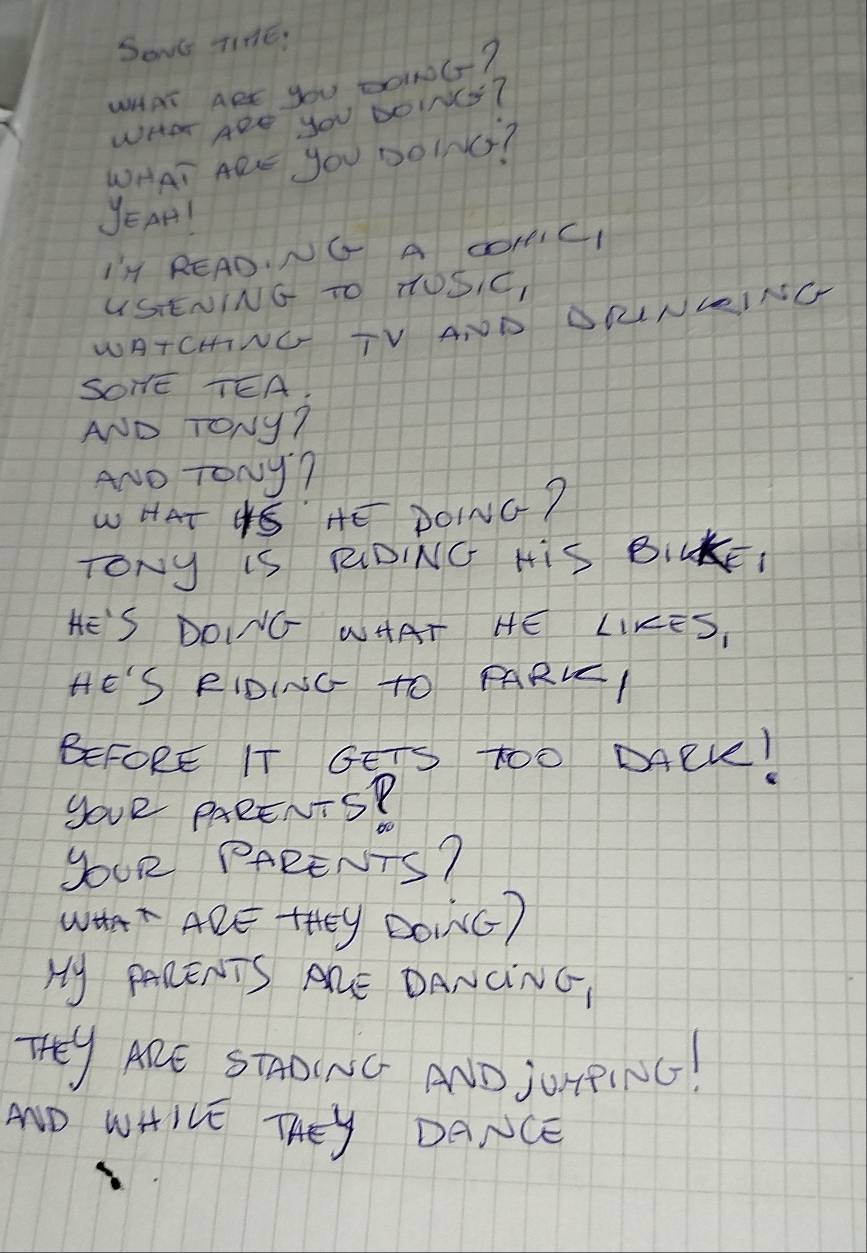 SONG TIME:
WHAT ARE YOU DOING?
WHAT ARE YOU DOING?
WHAT ARE YOU DOING?
YEAH!
I'M READING A COMIC,
LISTENING TO MUSIC,
WATCHING TV AND DRINKING
SOME TEA.
AND TONY?
AND TONY?
WHAT IS HE DOING?
TONY IS RIDING HIS BIKE,
HE'S DOING WHAT HE LIKES,
HE'S RIDING TO PARK,
BEFORE IT GETS TOO DARK!
YOUR PARENTS?
YOUR PARENTS?
WHAT ARE THEY DOING?
MY PARENTS ARE DANCING,
THEY ARE STADING AND JUMPING!
AND WHILE THEY DANCE